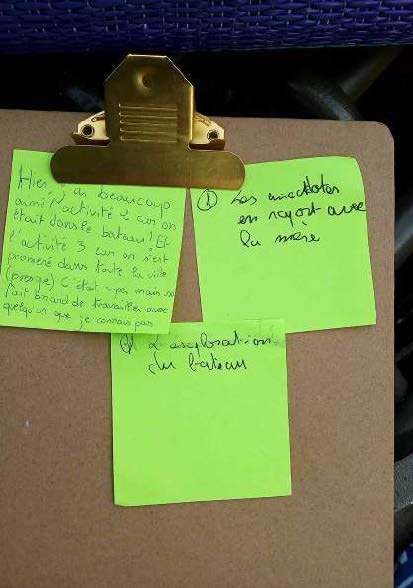 Hier j'ai beaucoup
aimé l'activité 2 car on
était dans le bateau ! Et
l'activité 3 car on s'est
promené dans toute la ville
(presque) C'était super mais
fait de travailler avec
quelqu'un que je connais pas
① Les anecdotes
en raport avec
la mère
L'exploration
du bateau